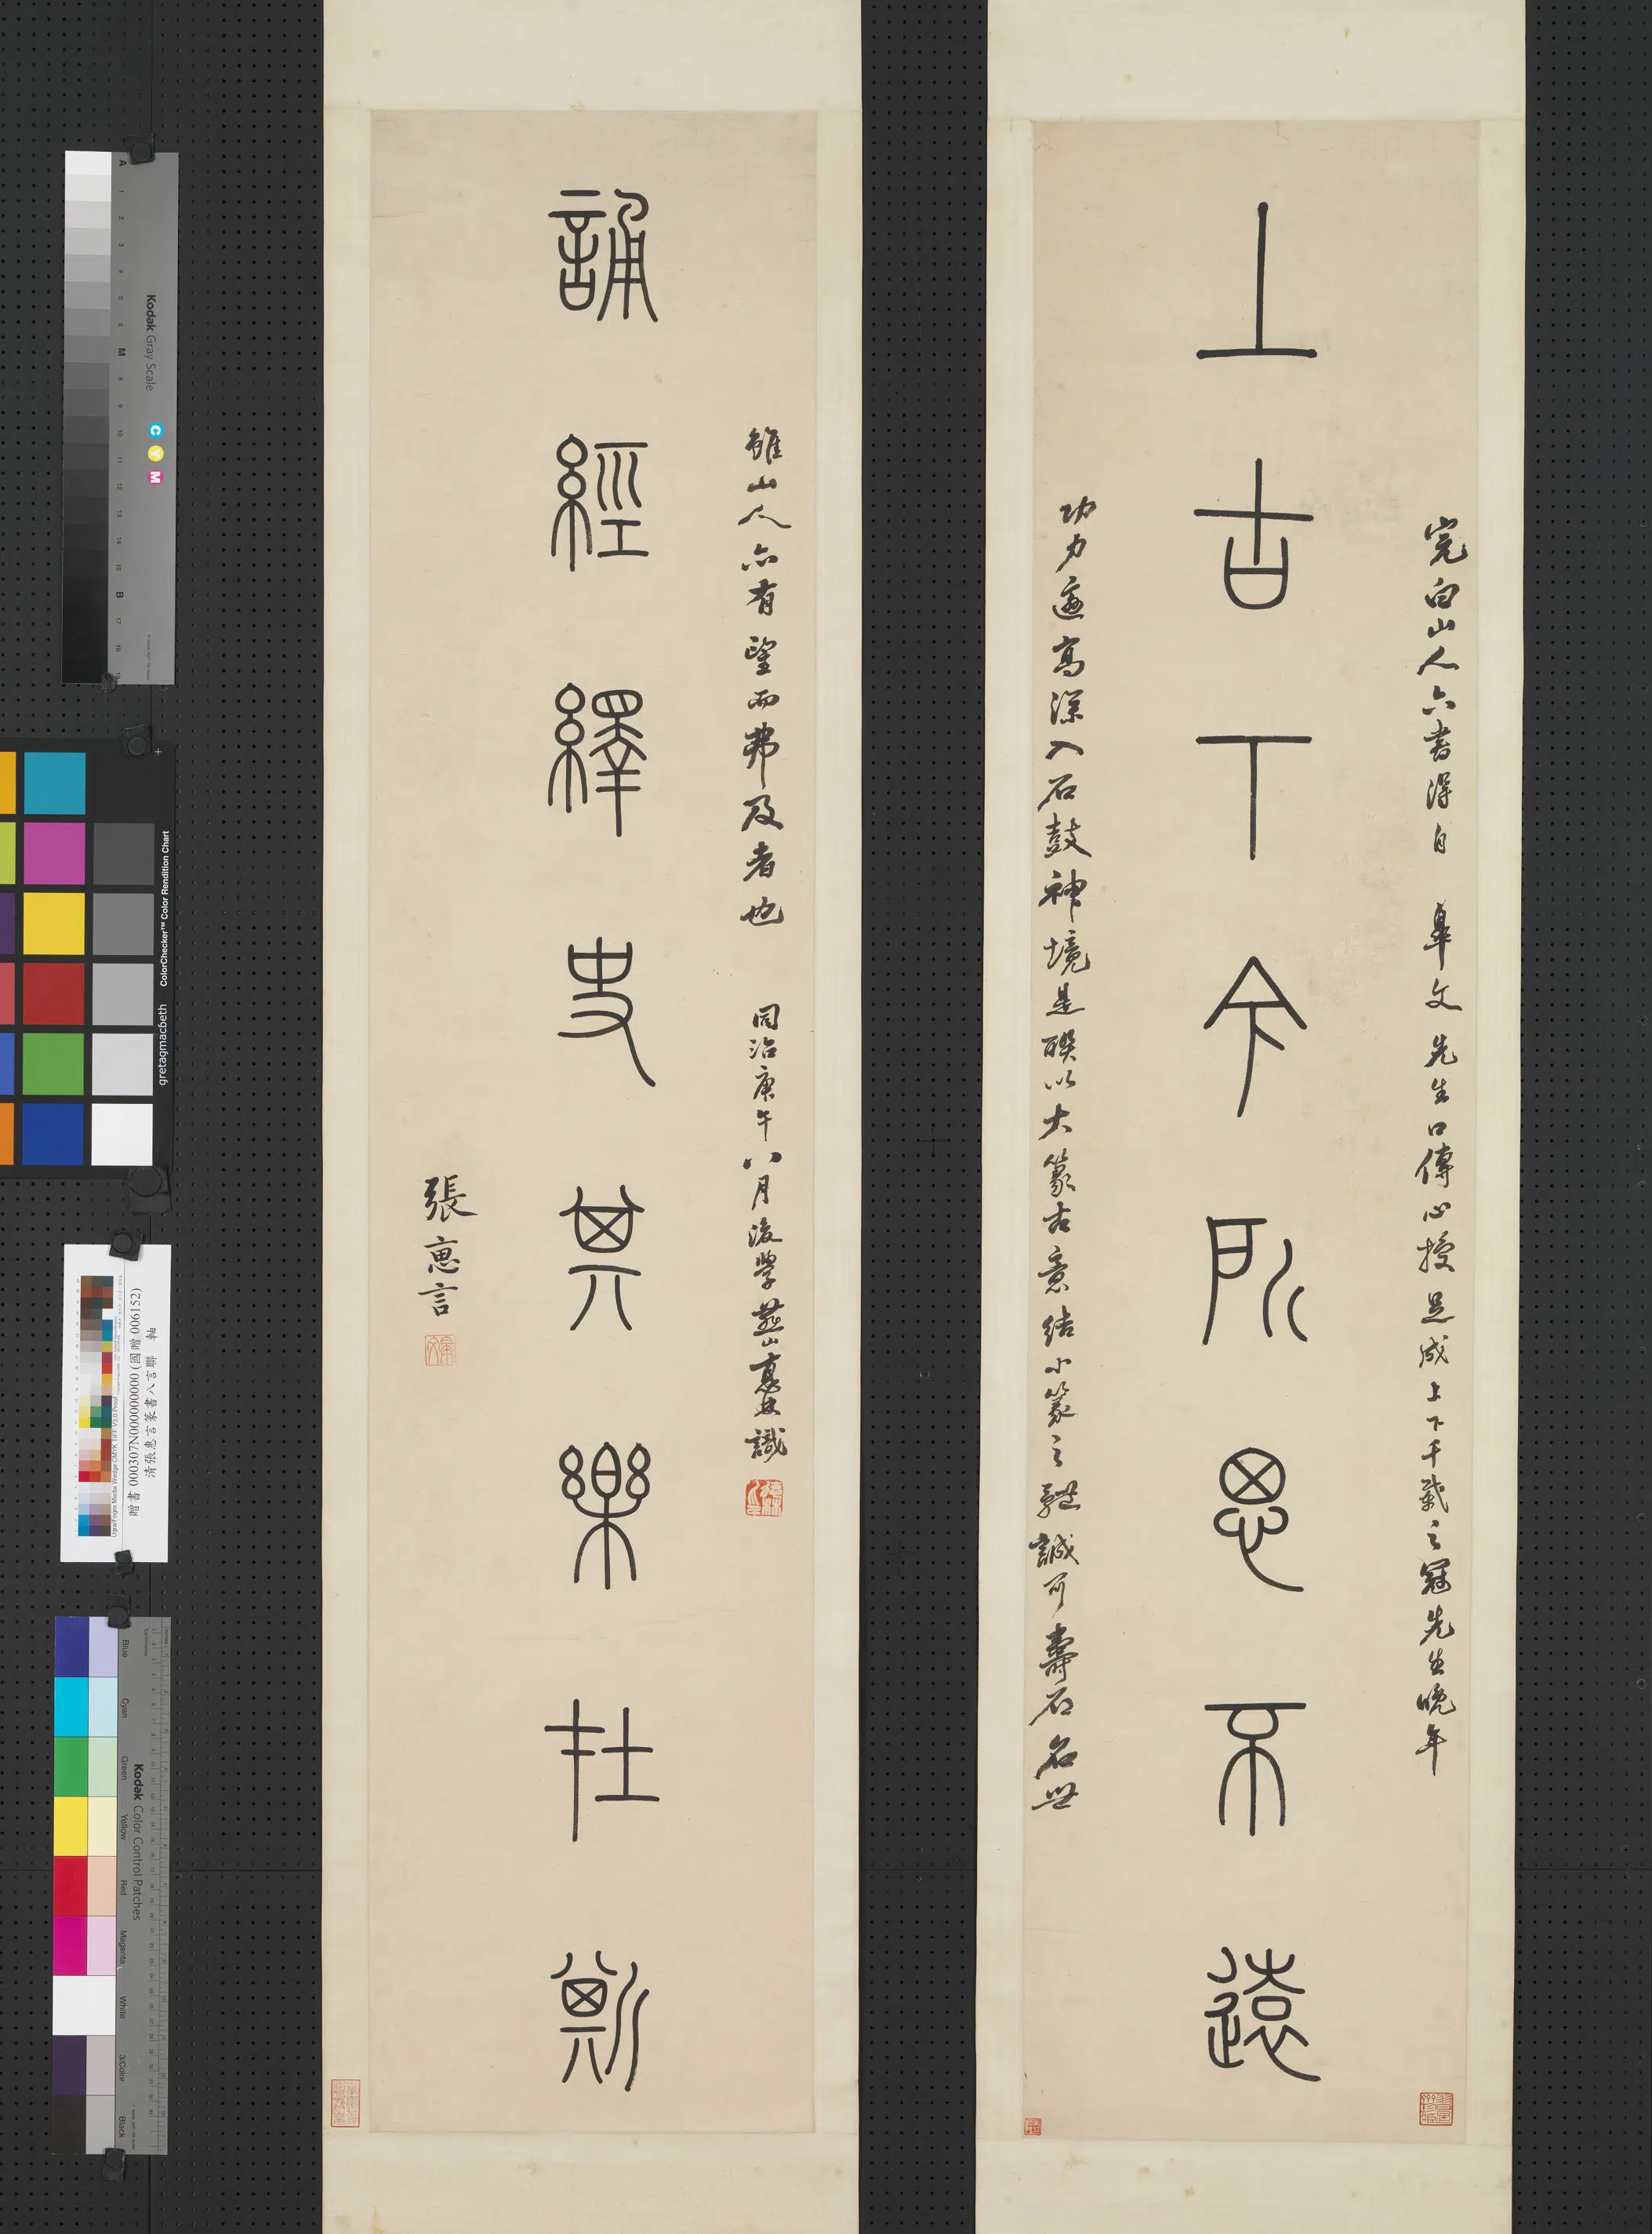 完白山人六書得自 皋文先生口傳心授是成上下千載之冠先生晚年
上古下今所思不遠
功力邃高深入石鼓神境是聯以大篆古意結小篆之體誠可壽石名世
雖山人亦有望而弗及者也 同治庚午八月後學燕山惪林識
誦經繹史其樂在斯
張惠言
Kodak Gray Scale
C Y M
A 1 2 3 4 5 6 M 8 9 10 11 12 13 14 15 B 17 18 19
ColorChecker™ Color Rendition Chart
gretagmacbeth
贈書 000307N000000000 (國贈 006152)
清張惠言篆書八言聯 軸
Kodak Color Control Patches
Blue Cyan Green Yellow Red Magenta White 3/Color Black